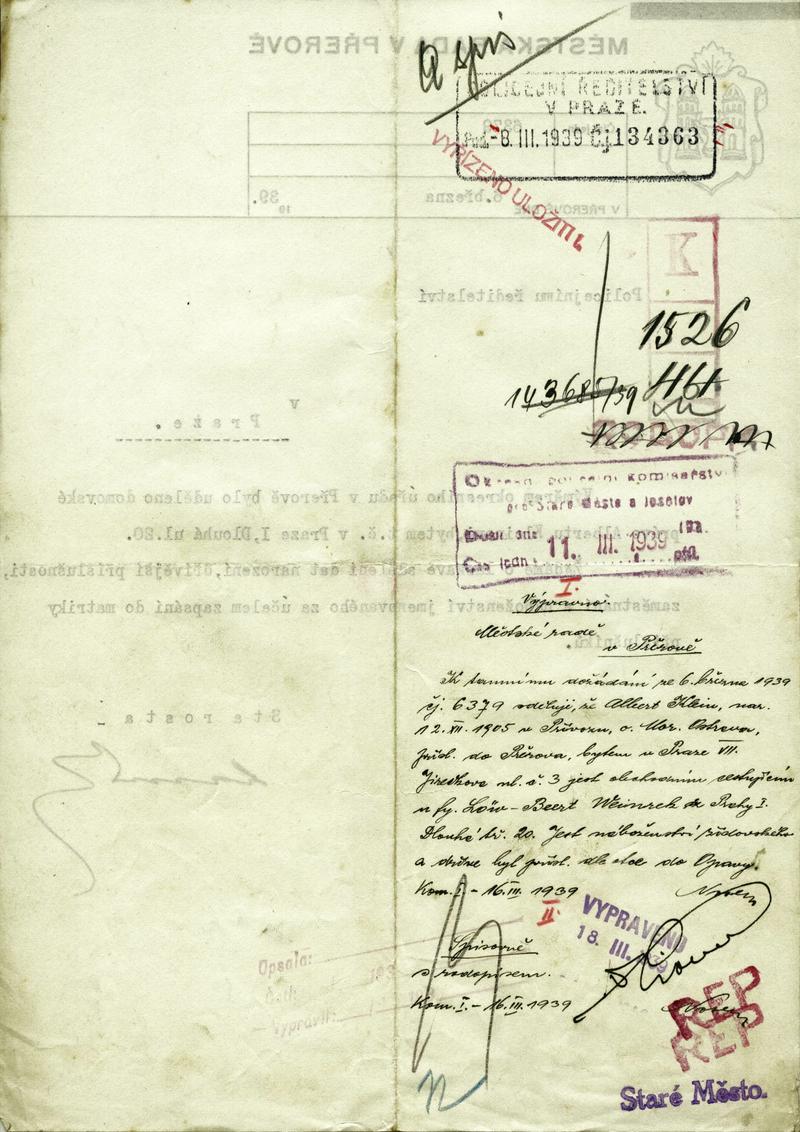 a spis
POLICEJNÍ ŘEDITELSTVÍ
V PRAZE.
Pod. -8. III. 1939 Čj 134363
VYŘÍZENO ULOŽITI
K
1526
143685/39
Okresní policejní komisařství
pro Staré Město a Josefov
11. III. 1939
I.
Výpravna:
Městské radě
v Přerově
K tamnímu dožádání ze 6. března 1939
čj. 6379 sděluji, že Albert Klein, nar.
12. XII. 1905 v Přívozu, o. Mor. Ostrava,
přísl. do Přerova, bytem v Praze VII.
Jirečkova ul. č. 3 jest obchodním
u fy. Löw-Beer Praha I.
Dlouhá tř. 20. Jest náboženství židovského
a dříve byl přísl. dle otce do Opavy.
Kom. I. - 16. III. 1939
II.
VYPRAVENO
18. III. 1939
Spisovně
s rodopisem.
Kom. I. - 16. III. 1939
REP
REP
Staré Město.
MĚSTSKÁ RADA V PŘEROVĚ
6379
V PŘEROVĚ DNE 6. března 1939.
Policejnímu ředitelství
v
Praze.
Výměrem okresního úřadu v Přerově bylo uděleno domovské
Albertu Kleinovi, bytem t.č. v Praze I, Dlouhá ul. 20.
sdělení dat narození, dřívější příslušnosti,
zaměstnání a náboženství jmenovaného za účelem zapsání do matriky
příslušníků.
Starosta
Opsala:
Četl:
Vypravil:
193